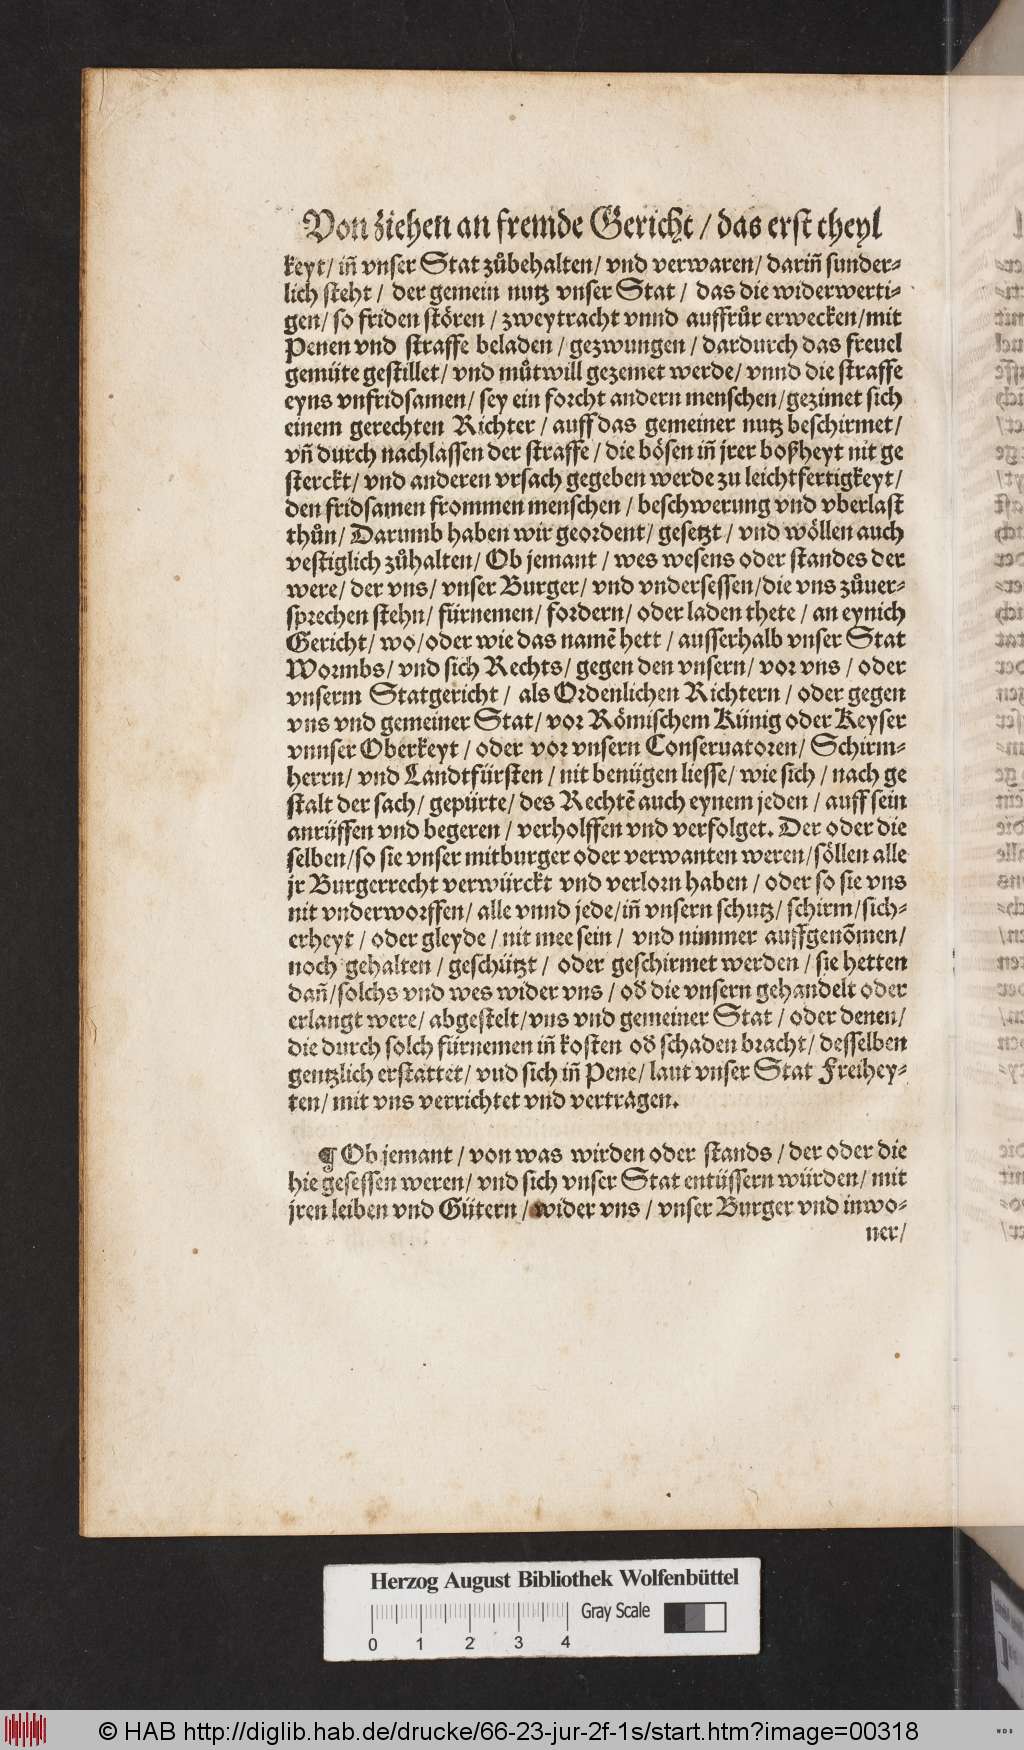 Von ziehen an fremde Gericht / das erst theyl
keyt / iñ vnser Stat zůbehalten / vnd verwaren / dariñ sunder-
lich steht / der gemein nutz vnser Stat / das die widerwerti-
gen / so friden stören / zweytracht vnnd auffrůr erwecken / mit
Penen vnd straffe beladen / gezwungen / dardurch das freuel
gemüte gestillet / vnd můtwill gezemet werde / vnnd die straffe
eyns vnfridsamen / sey ein forcht andern menschen / gezimet sich
einem gerechten Richter / auff das gemeiner nutz beschirmet /
vñ durch nachlassen der straffe / die bösen iñ jrer boßheyt nit ge
sterckt / vnd anderen vrsach gegeben werde zu leichtfertigkeyt /
den fridsamen frommen menschen / beschwerung vnd vberlast
thůn / Darumb haben wir geordent / gesetzt / vnd wöllen auch
vestiglich zůhalten / Ob jemant / wes wesens oder standes der
were / der vns / vnser Burger / vnd vndersessen / die vns zůuer-
sprechen stehn / fürnemen / fordern / oder laden thete / an eynich
Gericht / wo / oder wie das namẽ hett / ausserhalb vnser Stat
Wormbs / vnd sich Rechts / gegen den vnsern / vor vns / oder
vnserm Statgericht / als Ordenlichen Richtern / oder gegen
vns vnd gemeiner Stat / vor Römischem Künig oder Keyser
vnnser Oberkeyt / oder vor vnsern Conseruatoren / Schirm-
herrn / vnd Landtfürsten / nit benügen liesse / wie sich / nach ge
stalt der sach / gepürte / des Rechtẽ auch eynem jeden / auff sein
anrüffen vnd begeren / verholffen vnd verfolget. Der oder die
selben / so sie vnser mitburger oder verwanten weren / söllen alle
jr Burgerrecht verwürckt vnd verlorn haben / oder so sie vns
nit vnderworffen / alle vnnd jede / iñ vnsern schutz / schirm / sich-
erheyt / oder gleyde / nit mee sein / vnd nimmer auffgenõmen /
noch gehalten / geschützt / oder geschirmet werden / sie hetten
dañ / solchs vnd wes wider vns / oď die vnsern gehandelt oder
erlangt were / abgestelt / vns vnd gemeiner Stat / oder denen /
die durch solch fürnemen iñ kosten oď schaden bracht / desselben
gentzlich erstattet / vnd sich iñ Pene / laut vnser Stat Freihey-
ten / mit vns verrichtet vnd vertragen.
¶ Ob jemant / von was wirden oder stands / der oder die
hie gesessen weren / vnd sich vnser Stat entüssern würden / mit
jren leiben vnd Gütern / wider vns / vnser Burger vnd inwo-
ner /
Herzog August Bibliothek Wolfenbüttel
Gray Scale
0 1 2 3 4
© HAB http://diglib.hab.de/drucke/66-23-jur-2f-1s/start.htm?image=00318